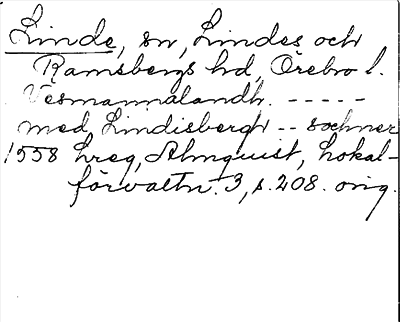 Linde, sn, Lindes och
Ramsbergs hd, Örebro l.
Vesmannalandh. - - - - -
med Lindisbergh - - sochner
1558 hreg, Almquist, Lokal-
förvaltn. 3, s. 208. orig.